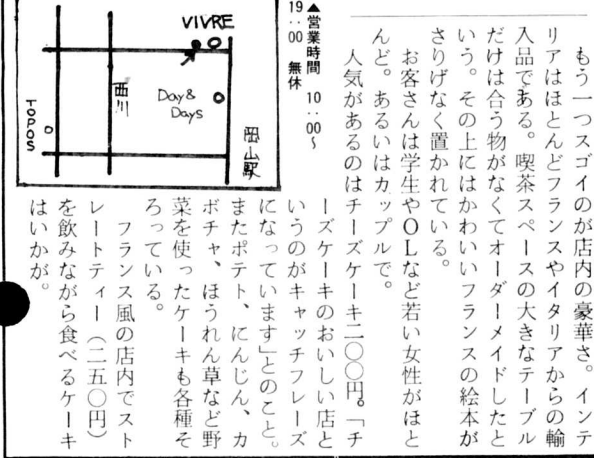 もう一つスゴイのが店内の豪華さ。インテ
リアはほとんどフランスやイタリアからの輸
入品である。喫茶スペースの大きなテーブル
だけは合う物がなくてオーダーメイドしたと
いう。その上にはかわいいフランスの絵本が
さりげなく置かれている。
お客さんは学生やOLなど若い女性がほと
んど。あるいはカップルで。
人気があるのはチーズケーキ二〇〇円。「チ
ーズケーキのおいしい店と
いうのがキャッチフレーズ
になっています」とのこと。
またポテト、にんじん、カ
ボチャ、ほうれん草など野
菜を使ったケーキも各種そ
ろっている。
フランス風の店内でスト
レートティー(二五〇円)
を飲みながら食べるケーキ
はいかが。
▲営業時間 10:00〜
19:00 無休
VIVRE
西川
Day&
Days
岡山駅
TOPOS